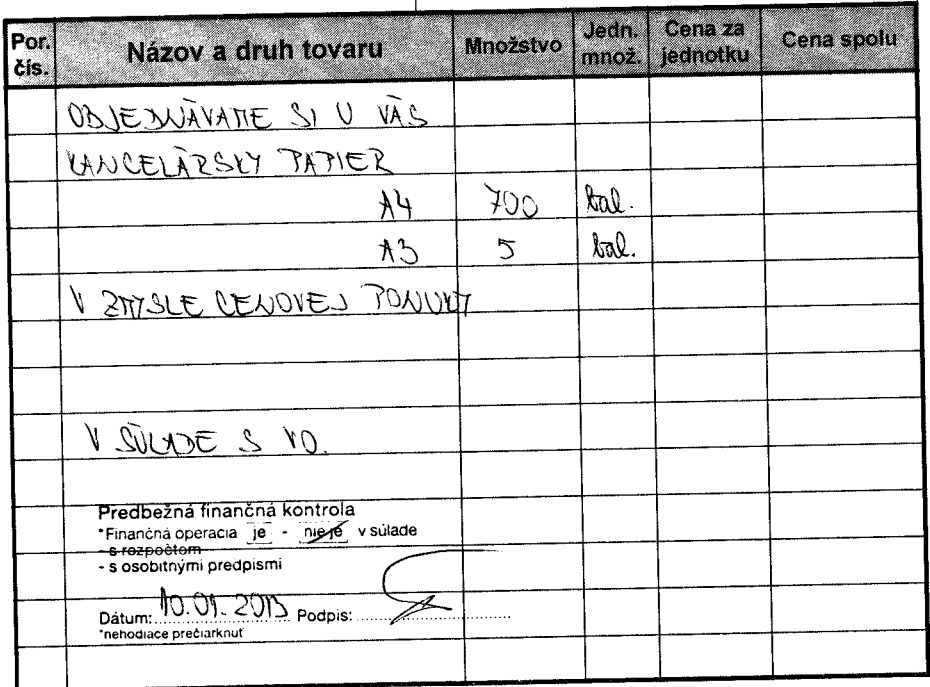 Por. čís. Názov a druh tovaru Množstvo Jedn. množ. Cena za jednotku Cena spolu
OBJEDNÁVAME SI U VÁS
KANCELÁRSKY PAPIER
A4 700 bal.
A3 5 bal.
V ZMYSLE CENOVEJ PONUKY
V SÚLADE S VO.
Predbežná finančná kontrola
*Finančná operacia je - nie je v súlade
- s rozpočtom
- s osobitnými predpismi
Dátum: 10.01.2013 Podpis:
*nehodiace prečiarknuť